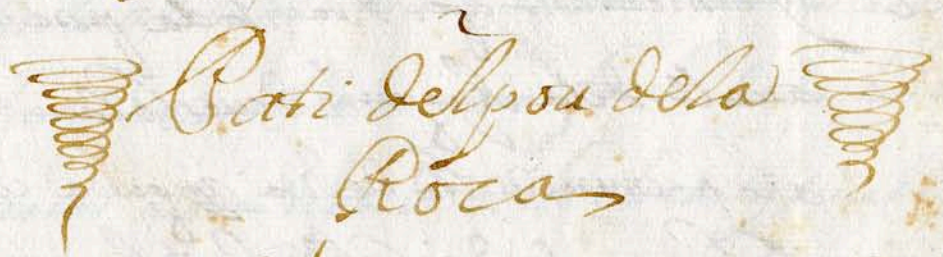 Pati del pou de la
Roca